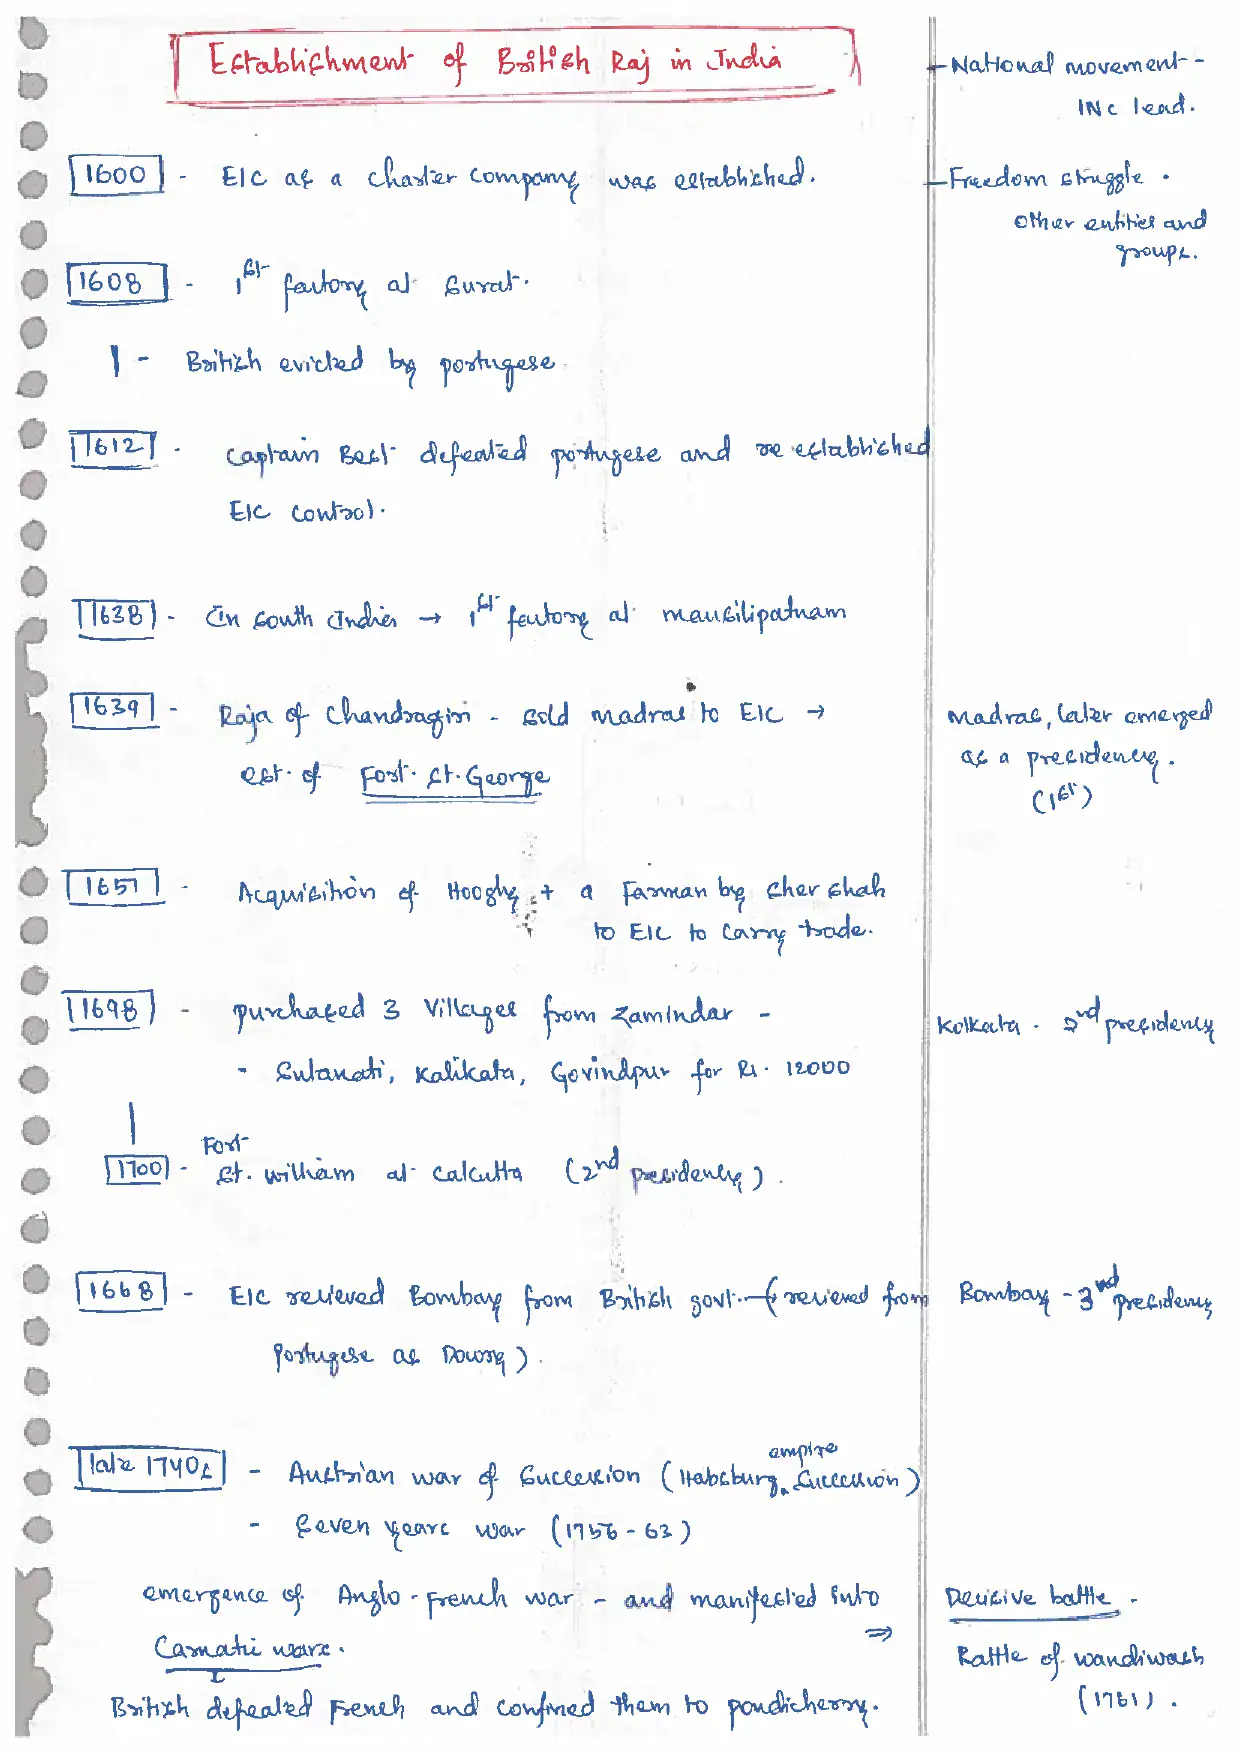 Establishment of British Raj in India
- National movement -
INC lead.
1600 - EIC as a charter company was established.
- Freedom struggle .
other entities and
groups.
1608 - 1st factory at Surat.
- British evicted by portugese.
1612 - Captain Best defeated portugese and re established
EIC control.
1638 - In South India → 1st factory at mausilipatnam
1639 - Raja of Chandragiri - sold madras to EIC →
est. of Fost. St. George
Madras, later emerged
as a presidency.
(1st)
1651 - Acquisition of Hoogly + a Farman by Sher Shah
to EIC to carry trade.
1698 - purchased 3 Villages from Zamindar -
- Sutanati, Kalikata, Govindpur for Rs. 12000
Kolkata - 2nd presidency
Fort
1700 - St. william at Calcutta (2nd presidency).
1668 - EIC recieved Bombay from British govt. (recieved from
portugese as Dowry).
Bombay - 3nd presidency
late 1740s - Austrian war of Succession (Habsburg empire Succession)
- Seven years war (1756 - 63)
emergence of Anglo - french war - and manifested into
Carnatic wars. ⇒
British defeated French and confined them to pondicherry.
Decisive battle -
Battle of wandiwash
(1761) .